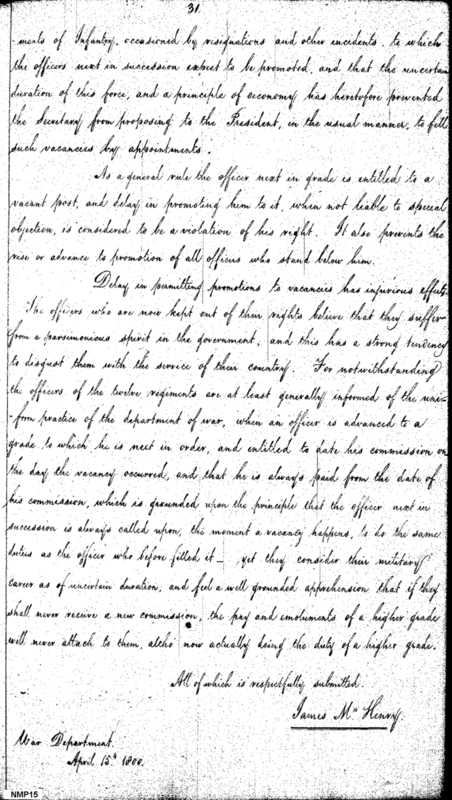 31.
-ments of Infantry, occasioned by resignations and other incidents, to which
the officers next in succession expect to be promoted, and that the uncertain
duration of this force, and a principle of oeconomy has heretofore prevented
the Secretary from proposing to the President, in the usual manner, to fill
such vacancies by appointments.
As a general rule the officer next in grade is entitled to a
vacant post, and delay in promoting him to it, when not liable to special
objection, is considered to be a violation of his right. It also prevents the
rise or advance to promotion of all officers who stand below him.
Delay in permitting promotions to vacancies has injurious effects.
The officers who are now kept out of their rights believe that they suffer
from a parsimonious spirit in the government, and this has a strong tendency
to disgust them with the service of their country. For notwithstanding
the officers of the twelve regiments are at least generally informed of the uni-
-form practice of the department of war, when an officer is advanced to a
grade to which he is next in order, and entitled to date his commission on
the day the vacancy occurred, and that he is always paid from the date of
his commission, which is grounded upon the principle that the officer next in
succession is always called upon, the moment a vacancy happens, to do the same
duties as the officer who before filled it — yet they consider their military
career as of uncertain duration, and feel a well grounded apprehension that if they
shall never receive a new commission, the pay and emoluments of a higher grade
will never attach to them, altho' now actually doing the duty of a higher grade.
All of which is respectfully submitted.
James McHenry.
War Department.
April 15th 1800.
NMP15